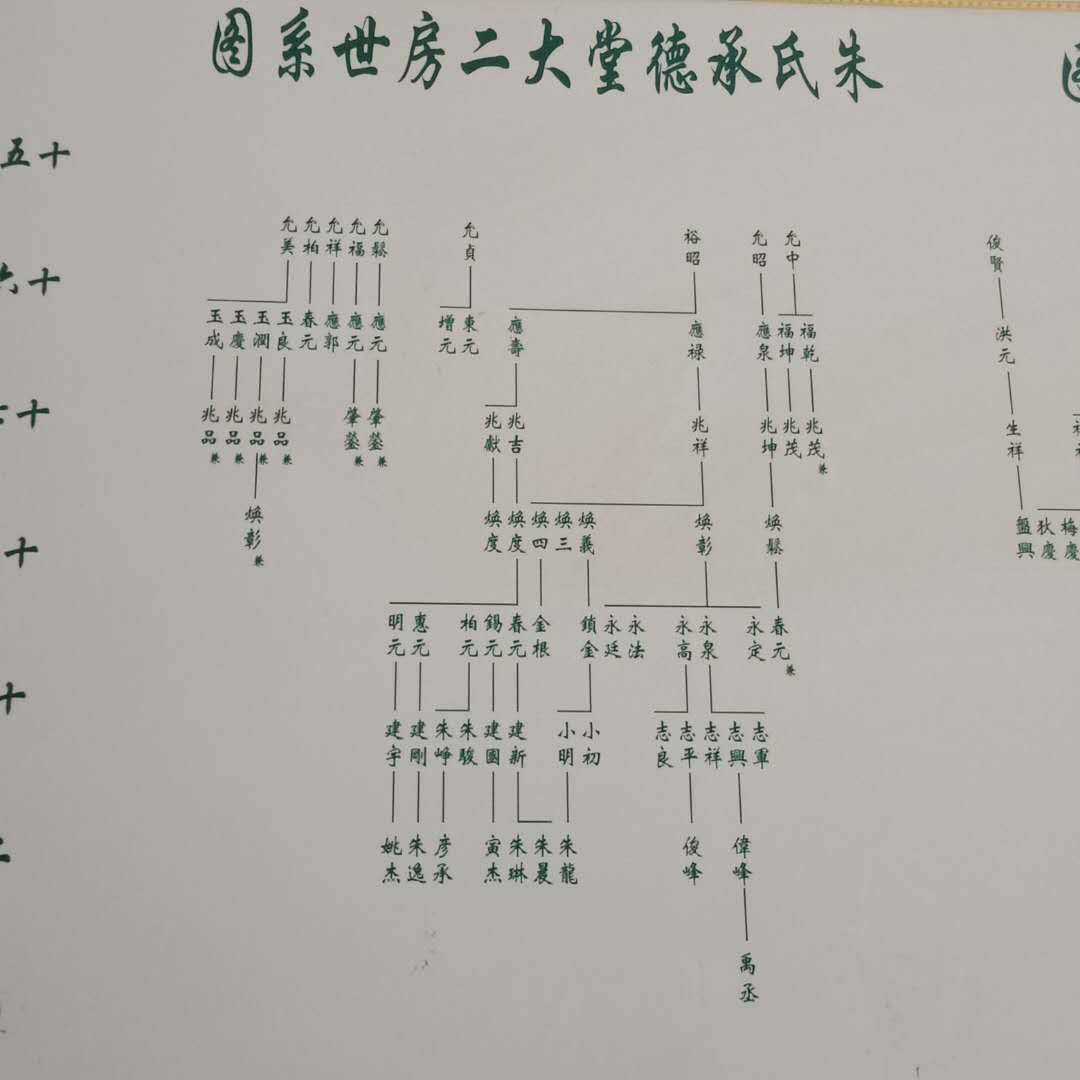 朱氏承德堂大二房世系图
十五
十六
十
十
十
允中
允昭
裕昭
允貞
允鬆
允福
允祥
允柏
允美
俊賢
福乾
福坤
應泉
應禄
應壽
東元
增元
應元
應元
應郭
春元
玉良
玉潤
玉慶
玉成
洪元
兆茂兼
兆茂
兆坤
兆祥
兆吉
兆獻
肇鎣兼
肇鎣兼
兆品兼
兆品兼
兆品兼
兆品兼
生祥
煥鬆
煥彰
煥義
煥三
煥四
煥度
煥度
煥彰兼
梅慶
狄慶
盤興
春元兼
永定
永泉
永高
永法
永廷
鎖金
金根
春元
錫元
柏元
惠元
明元
志軍
志興
志祥
志平
志良
小初
小明
建新
建國
朱駿
朱崢
建剛
建宇
偉峰
俊峰
朱龍
朱晨
朱琳
寅杰
彦承
朱逸
姚杰
禹丞